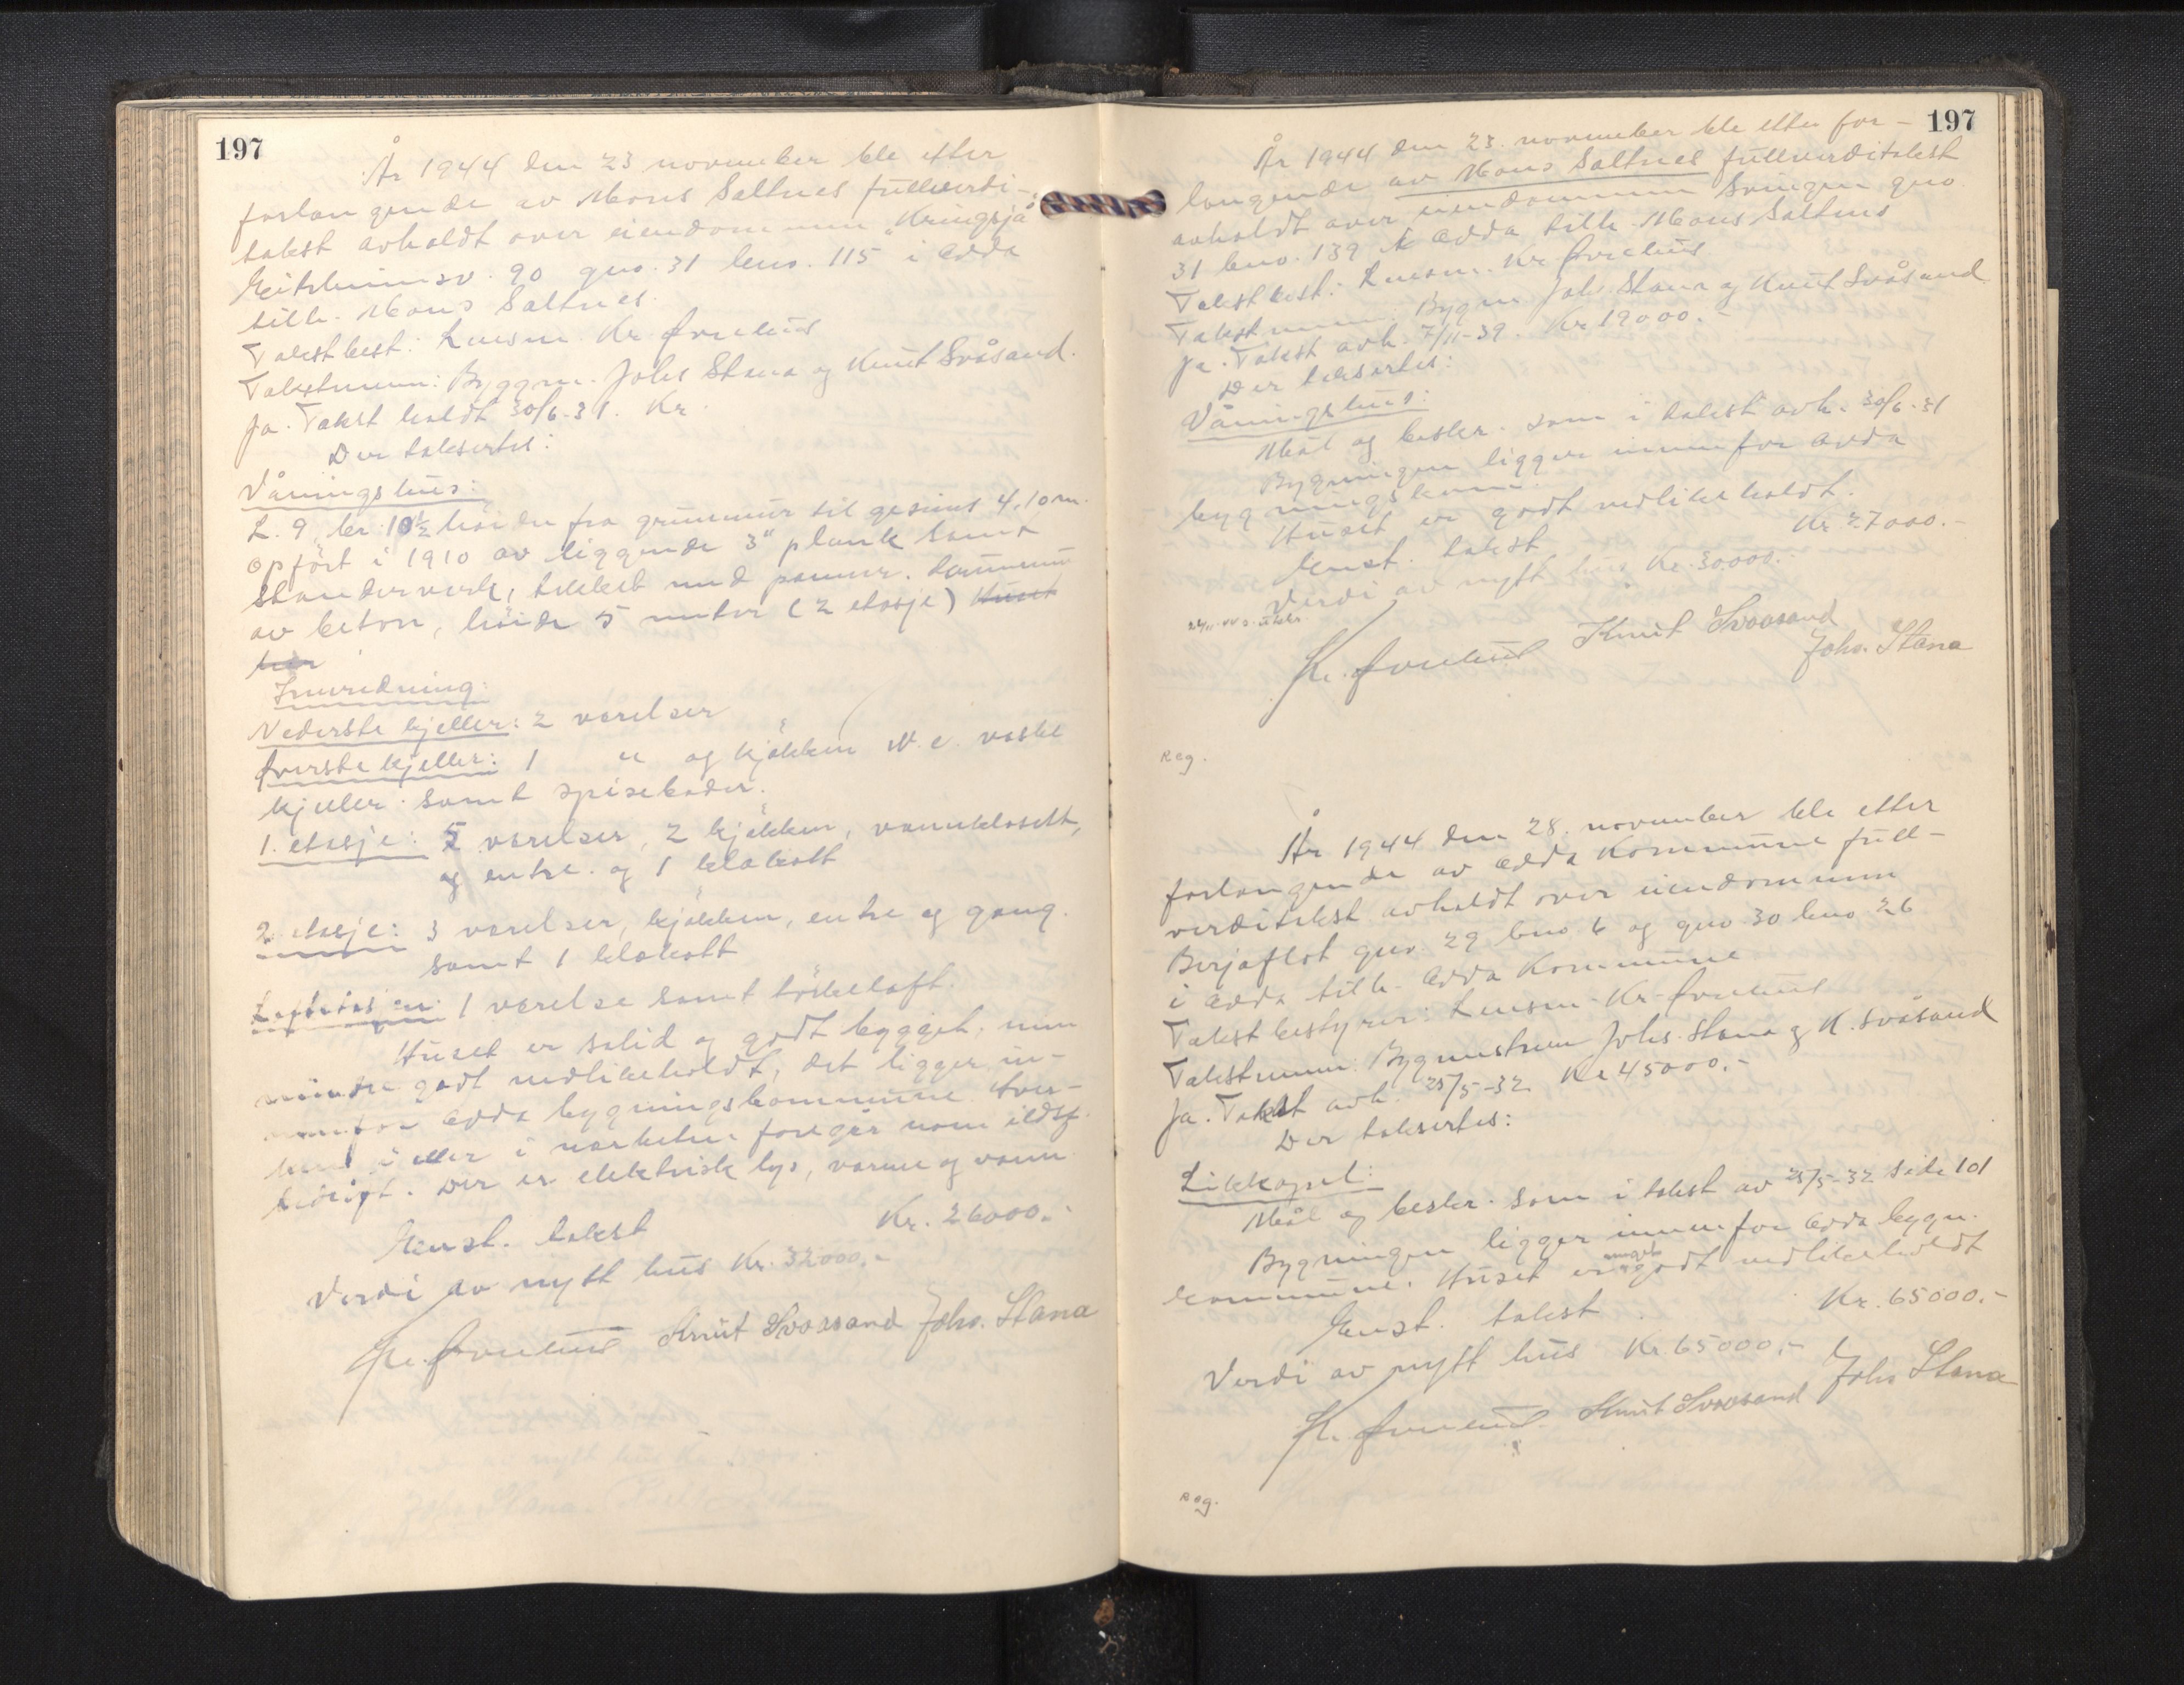 197
År 1944 den 23 november ble etter
forlangende av Mons Saltnes fullverdi-
takst avholdt over eiendommen "Kringsjå"
Eitrheimsv. 90 gno. 31 bno. 115 i Odda
tilh. Mons Saltnes.
Takstbest: Lensm. Kr. Øvrehus
Takstmenn: Byggm. Johs Stana og Knut Svåsand.
Ja. Takst holdt 30/6-31. Kr.
Der taksertes:
Våningshus:
L. 9, br. 10½ höiden fra grunmur til gesims 4,10 m.
Opfört i 1910 av liggende 3" plank samt
standerverk, tekket med panner.
av beton, höide 5 meter (2 etasje) Huset
har
Innredning:
Nederste kjeller: 2 værelser
Øverste kjeller: 1 " og kjökken W.c. vaske
kjeller samt spiseboder.
1. etasje: 5 værelser, 2 kjökken, vannklosett,
og entre og 1 klokott
2 etasje: 3 værelser, kjökken, entre og gang.
samt 1 klokott
Loftetasjen: 1 værelse samt törkeloft.
Huset er solid og godt bygget, men
mindre godt vedlikeholdt, det ligger in-
nenfor Odda bygningskommune. Hver-
ken i eller i nærheten foregår noen ildsf.
bedrift. Der er elektrisk lys, varme og vann
Enst. takst Kr. 26000.-
Verdi av nytt hus Kr. 32000.-
Kr. Øvrehus Knut Svaasand Johs. Stana
197
År 1944 den 23. november ble etter for-
langende av Mons Saltnes fullverditakst
avholdt over eiendommen Svingen gno.
31 bno. 139 i Odda tilh. Mons Saltnes
Takstbest: Lensm. Kr. Øvrehus
Takstmenn: Bygm Johs Stana og Knut Svåsand
Ja. Takst avh. 7/11-39. Kr 19000.-
Der taksertes:
Våningshus:
Mål og beskr. som i takst avh. 30/6-31
Bygningen ligger innenfor Odda
bygningskom.
Huset er godt vedlikeholdt.
Enst. takst Kr 27000.-
Verdi av nytt hus Kr. 30.000.-
Kr. Øvrehus Knut Svaasand
Johs. Stana
Reg.
År 1944 den 28. november ble etter
forlangende av Odda Kommune full-
verditakst avholdt over eiendommen
Berjaflot gno. 29 bno 6 og gno 30 bno 26
i Odda tilh. Odda Kommune
Takstbestyrer: Lensm. Kr. Øvrehus
Takstmenn: Bygmestrene Johs. Stana og K. Svåsand
Ja. Takst avh. 25/5-32 Kr 45000.-
Der taksertes:
Likkapel:
Mål og beskr. som i takst av 25/5-32 side 101
Bygningen ligger innenfor Odda bygn.
kommune. Huset er meget godt vedlikeholdt
Enst. takst Kr. 65000.-
Verdi av nytt hus Kr. 65000.-
Kr. Øvrehus Knut Svaasand Johs Stana
Reg.